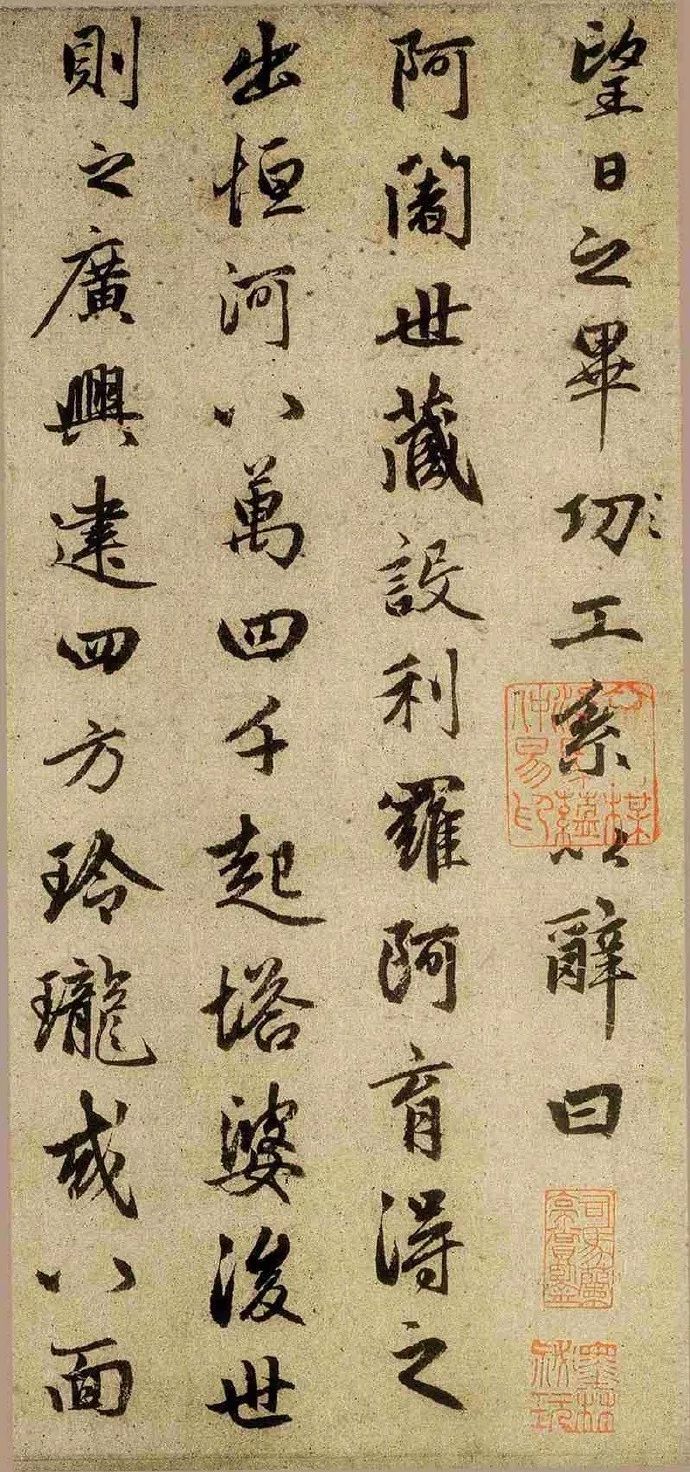 望日之畢功工系以辭曰
阿闍世藏設利羅阿育得之
出恒河八萬四千起塔婆後世
則之廣興建四方玲瓏或八面